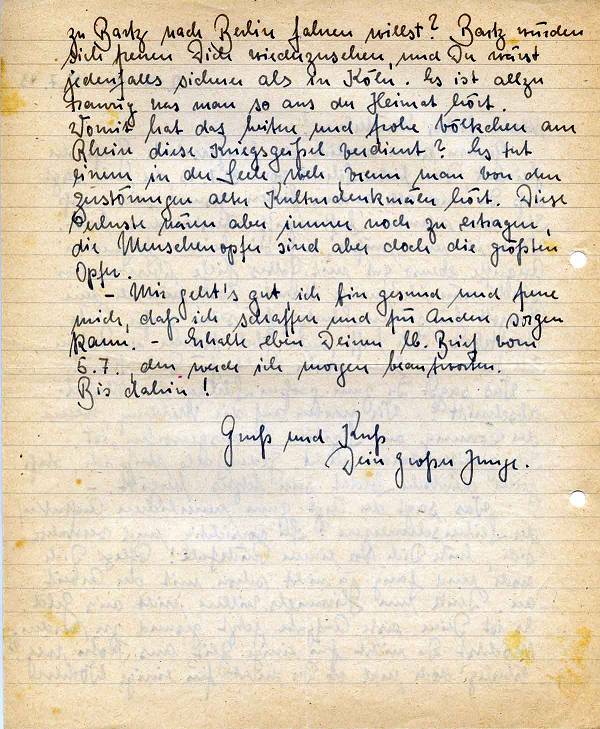 zu Bartz nach Berlin fahren willst? Bartz würden
sich freuen Dich wiederzusehen, und Du wärst
jedenfalls sicherer als in Köln. Es ist allzu
traurig was man so aus der Heimat hört.
Womit hat das heitere und frohe Völkchen am
Rhein diese Kriegsgeißel verdient? Es tut
einem in der Seele weh, wenn man von den
Zerstörungen alter Kulturdenkmäler hört. Diese
Verluste wären aber immer noch zu ertragen,
die Menschenopfer sind aber doch die größten
Opfer.
- Mir geht's gut, ich bin gesund und freue
mich, daß ich schaffen und für Andere sorgen
kann. - Erhalte eben Deinen lb. Brief vom
6.7., den werde ich morgen beantworten.
Bis dahin!
Gruß und Kuß
Dein großer Junge.